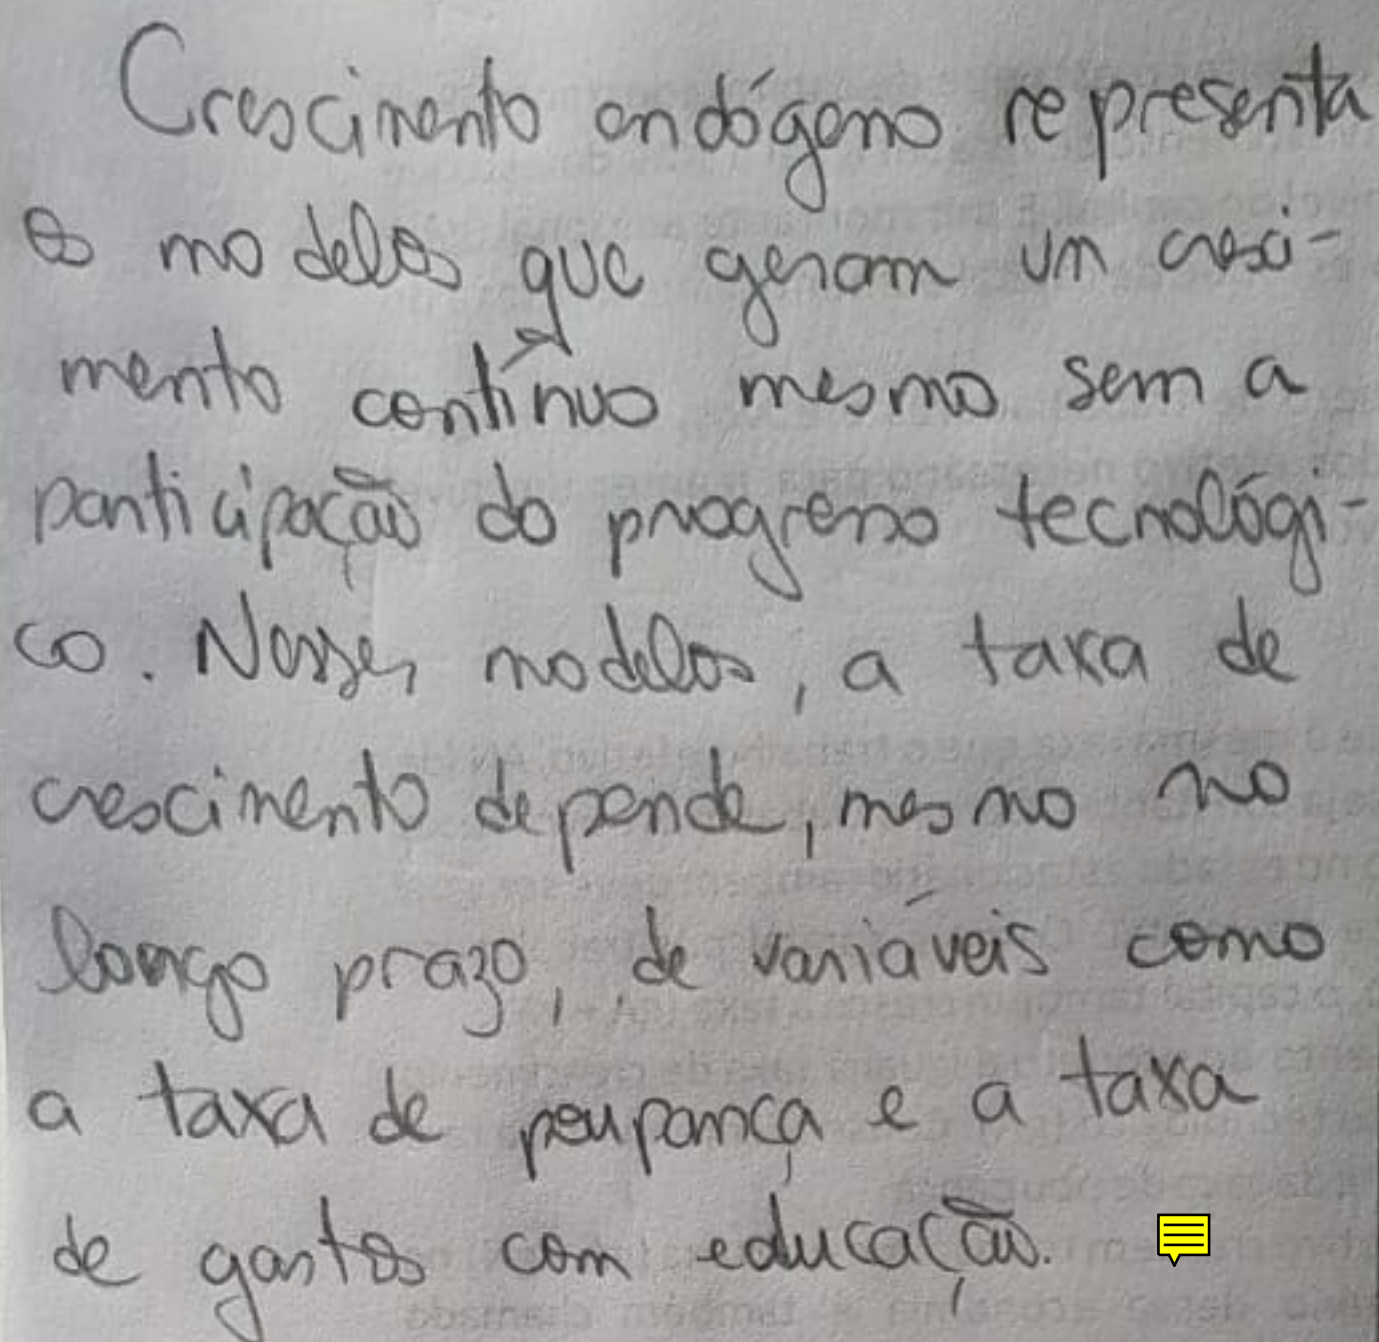 Crescimento endógeno representa
os modelos que geram um cresci-
mento contínuo mesmo sem a
participação do progresso tecnológi-
co. Nesses modelos, a taxa de
crescimento depende, mesmo no
longo prazo, de variáveis como
a taxa de poupança e a taxa
de gastos com educação.